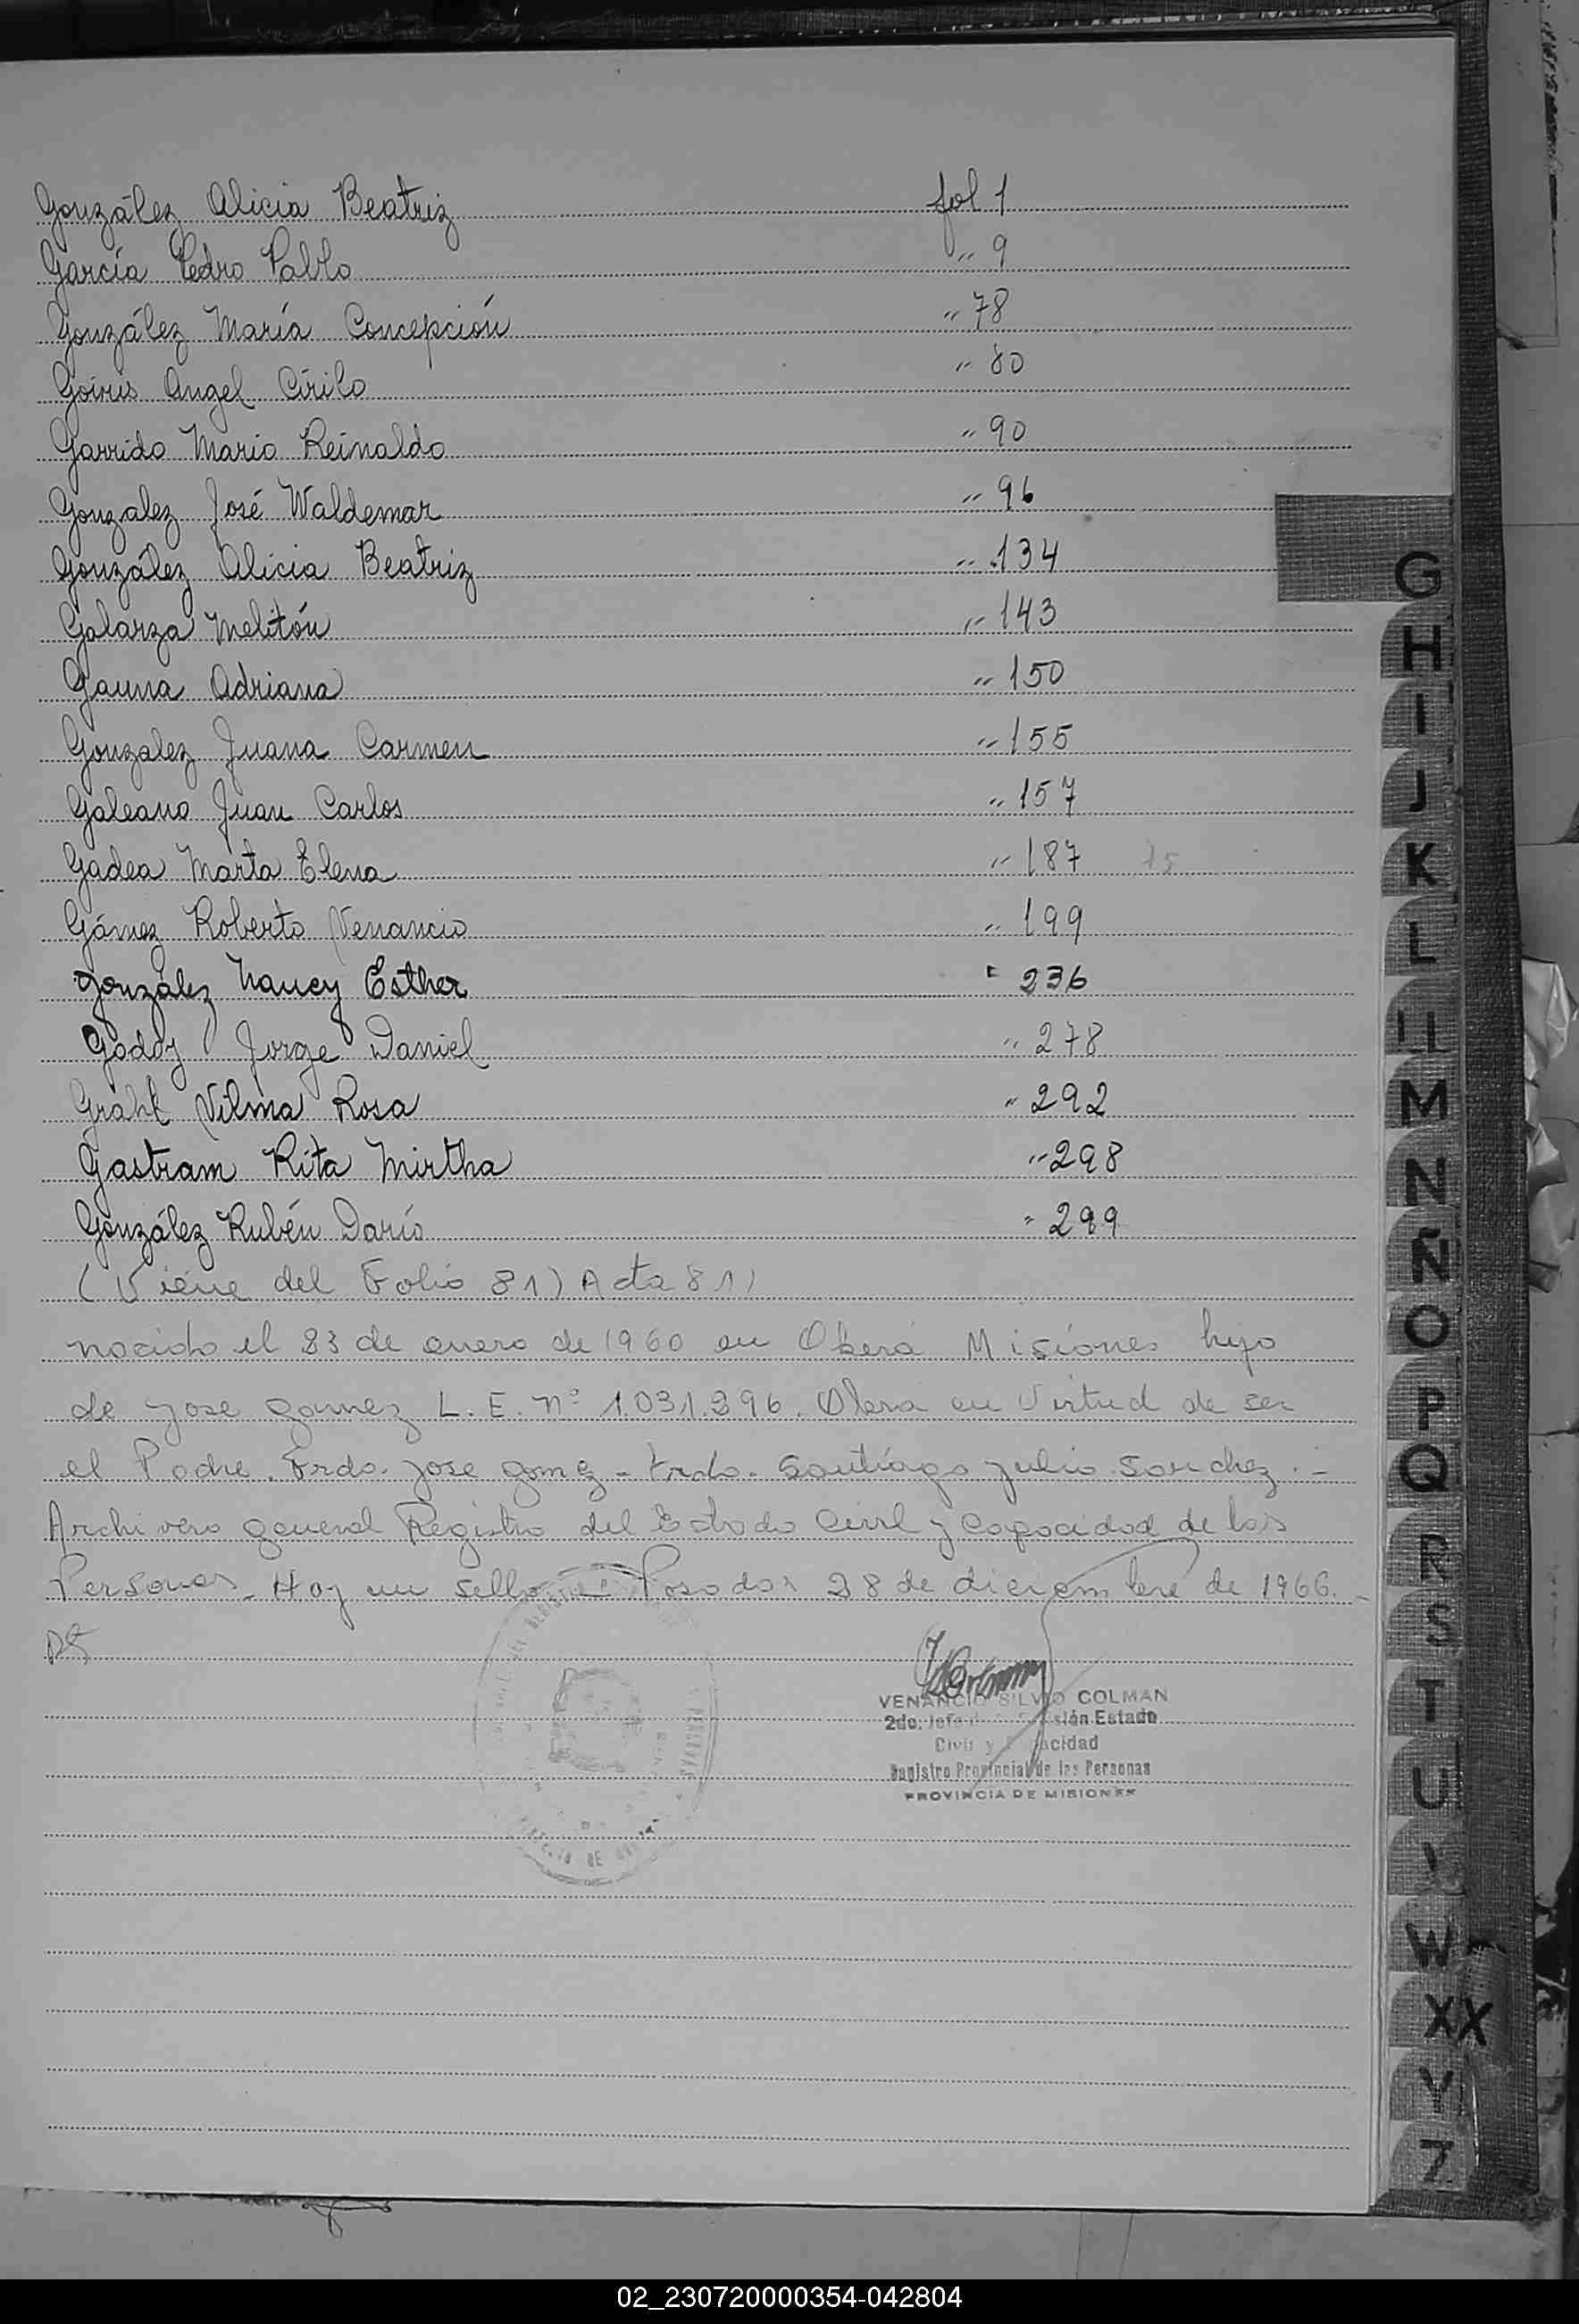 González Alicia Beatriz fol 1
García Pedro Pablo " 9
González María Concepción " 78
Goiris Angel Cirilo " 80
Garrido Mario Reinaldo " 90
Gonzalez José Waldemar " 96
González Alicia Beatriz " 134
Galarza Melitón " 143
Gauna Adriana " 150
Gonzalez Juana Carmen " 155
Galeano Juan Carlos " 157
Gadea Marta Elena " 187 15
Gámez Roberto Venancio " 199
González Nancy Esther " 236
Godoy Jorge Daniel " 278
Grahl Vilma Rosa " 292
Gastram Rita Mirtha " 298
González Rubén Darío " 299
(Viene del Folio 81) Acta 81)
nacido el 23 de enero de 1960 en Oberá Misiones hijo
de Jose Gomez L. E. nº 1.031.296. Obera en Virtud de ser
el Padre. Frdo. Jose Gomez - Frdo. Santiago Julio Sanchez. -
Archivero general Registro del Estado Civil y Capacidad de las
Personas - Hay un sello - Posadas 28 de diciembre de 1966. -
VENANCIO SILVIO COLMAN
2do. Jefe División Estado
Civil y Capacidad
Registro Provincial de las Personas
PROVINCIA DE MISIONES
G
H
I
J
K
L
LL
M
N
Ñ
O
P
Q
R
S
T
U
V
W
XX
Y
Z
02_230720000354-042804